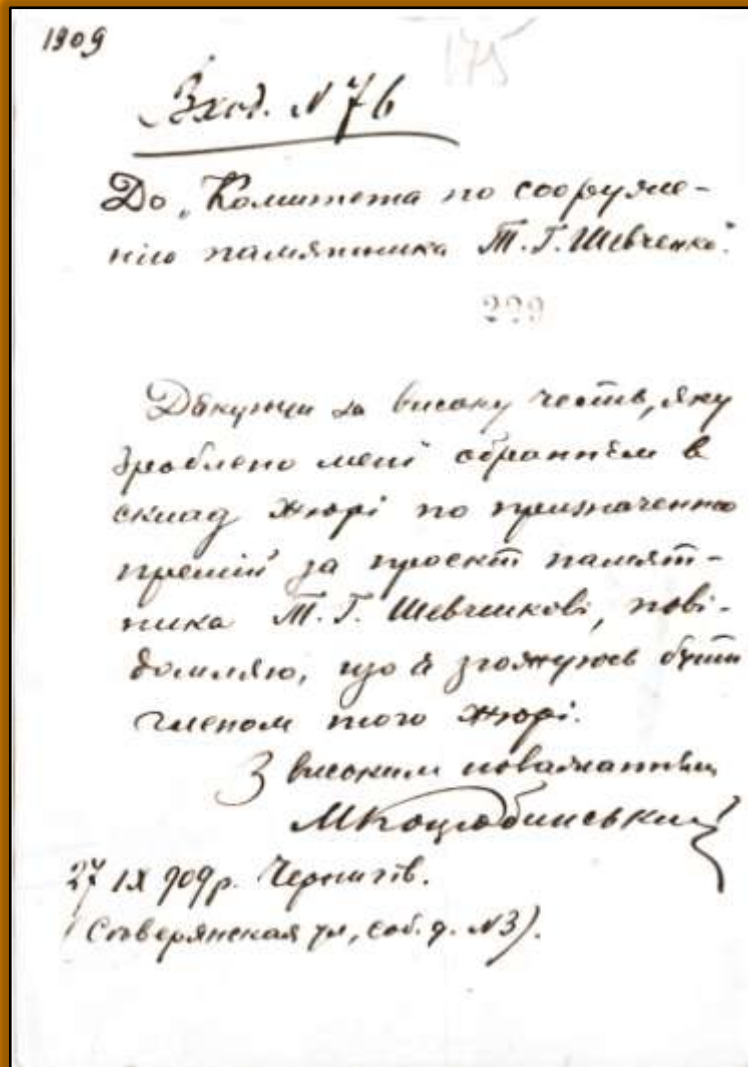 1909
175
Вход. N 76
До „Комитета по сооруже-
нію памятника Т. Г. Шевченко".
299
Дякуючи за високу честь, яку
зроблено мені обраннєм в
склад жюрі по призначенню
премій за проєкт памят-
ника Т. Г. Шевченкові, пові-
домляю, що я згожуюсь бути
членом того жюрі.
З високим поважаннєм
МКоцюбинський
27 IX 909 р. Чернигів.
(Сѣверянская ул., соб. д. N3).